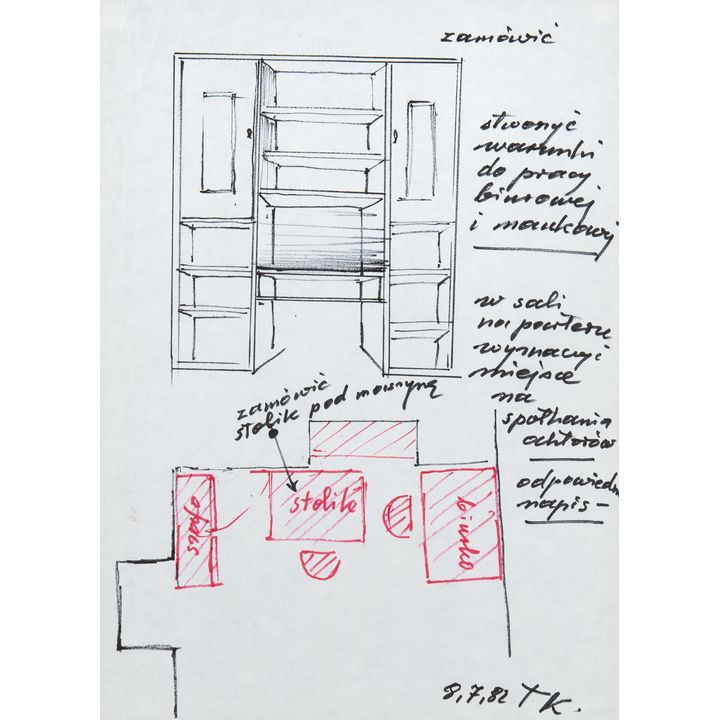 zamówić
stworzyć
warunki
do pracy
biurowej
i naukowej
w sali
na parterze
wyznaczyć
miejsce
na
spotkania
aktorów
odpowiedni
napis —
zamówić
stolik pod maszynę
stolik
biurko
8,7,82 TK.